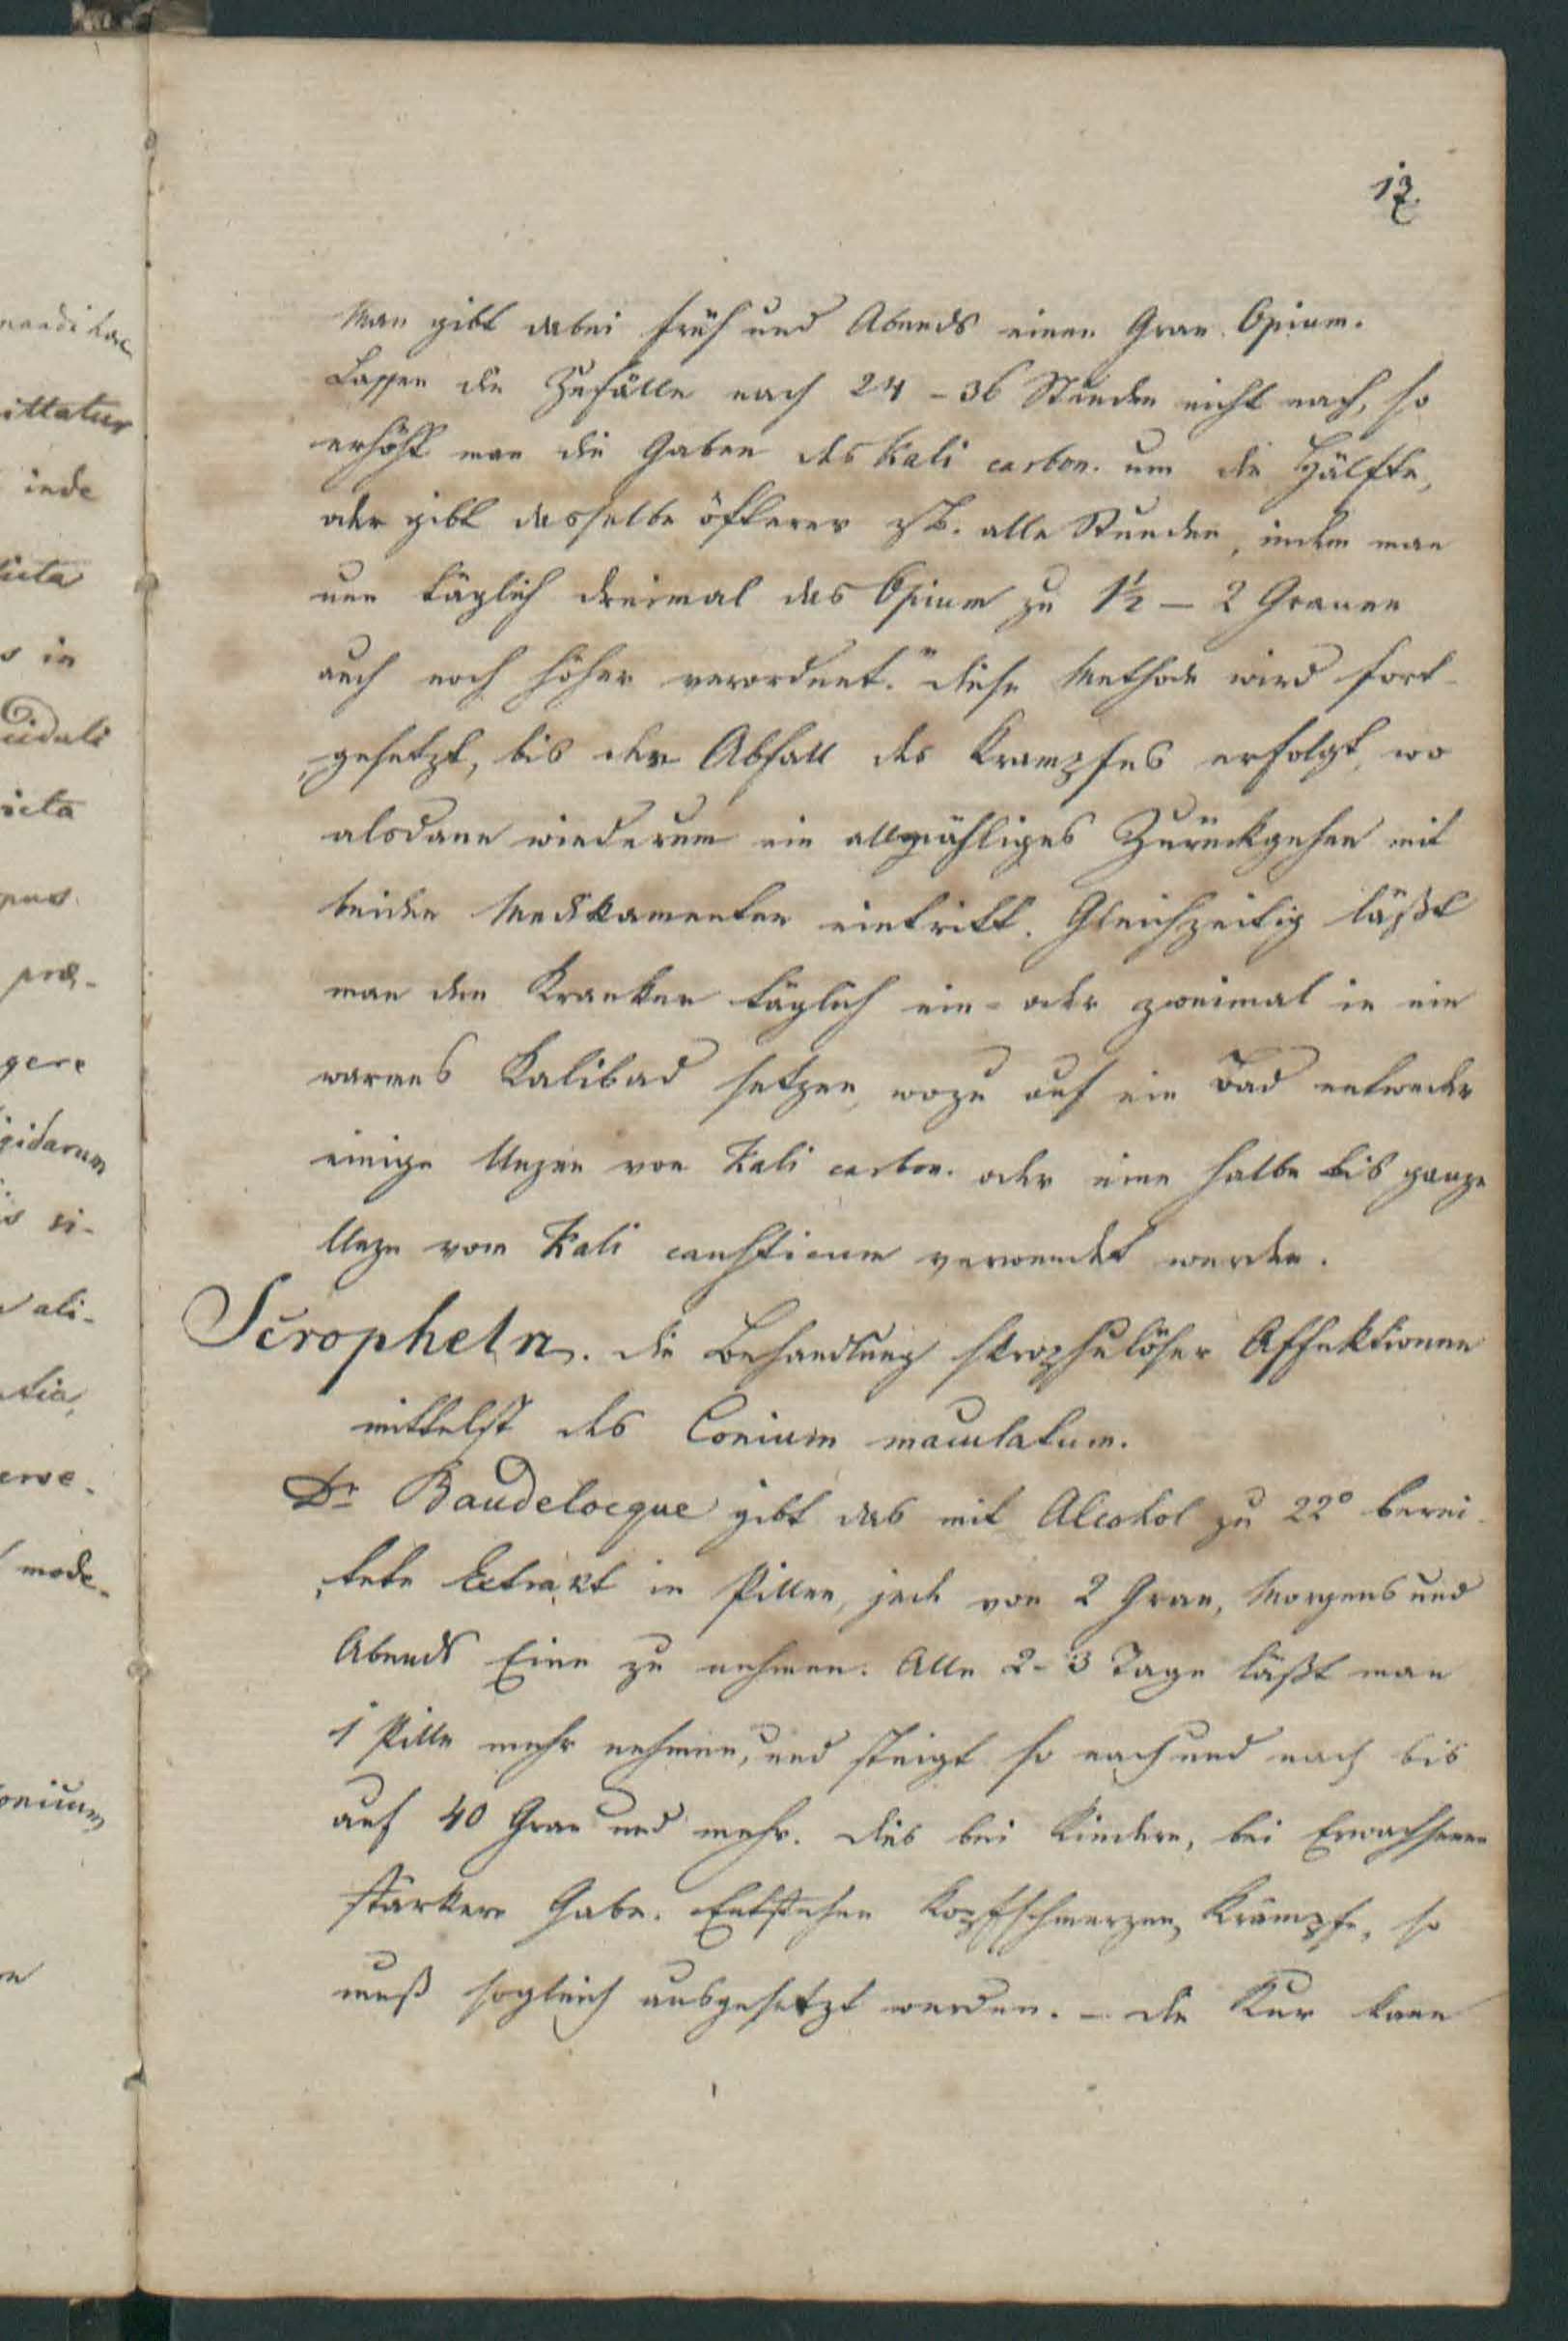 13.
Man gibt dabei früh und Abends einen Gran Opium.
Lassen die Zufälle nach 24 - 36 Stunden nicht nach, so
erhöht man die Gaben des Kali carbon. um die Hälfte,
oder gibt dasselbe öfterer z.B. alle Stunden, indem man
nun täglich dreimal das Opium zu 1½ - 2 Granen
auch noch höher verordnet." Diese Methode wird fort-
gesetzt, bis der Abfall des Krampfes erfolgt, wo
alsdann wiederum ein allmähliges Zurückgehen mit
beiden Medikamenten eintritt. Gleichzeitig läßt
man den Kranken täglich ein- oder zweimal in ein
warmes Kalibad setzen, wozu auf ein Bad entweder
einige Unzen von Kali carbon. oder eine halbe bis ganze
Unze vom Kali causticum verwendet werden.
Scropheln. Die Behandlung skrophulöser Affektionen
mittelst des Conium maculatum.
Dr Baudelocque gibt das mit Alcohol zu 22° berei-
tete Extrakt in Pillen, jede von 2 Gran, Morgens und
Abends Eine zu nehmen. Alle 2-3 Tage läßt man
1 Pille mehr nehmen, und steigt so nach und nach bis
auf 40 Gran und mehr. Dies bei Kindern, bei Erwachsenen
stärkere Gabe. Entstehen Kopfschmerzen, Krämpfe, so
muß sogleich ausgesetzt werden. - Die Kur kann
ittatur
inde
s in
gere
gidarum
is si-
ali-
tia,
mode-